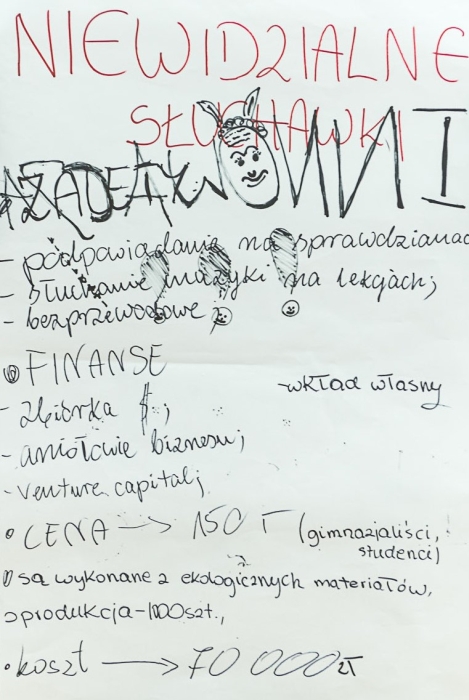 NIEWIDZIALNE
SŁUCHAWKI
- podpowiadanie na sprawdzianac
- słuchanie muzyki na lekcjach;
- bezprzewodowe;
FINANSE
- wkład własny
- zbiórka $;
- aniołowie biznesu;
- venture capital;
• CENA → 150 (gimnazjaliści,
studenci)
są wykonane z ekologicznych materiałów,
produkcja - 1000szt.,
• koszt → 70 000 zł